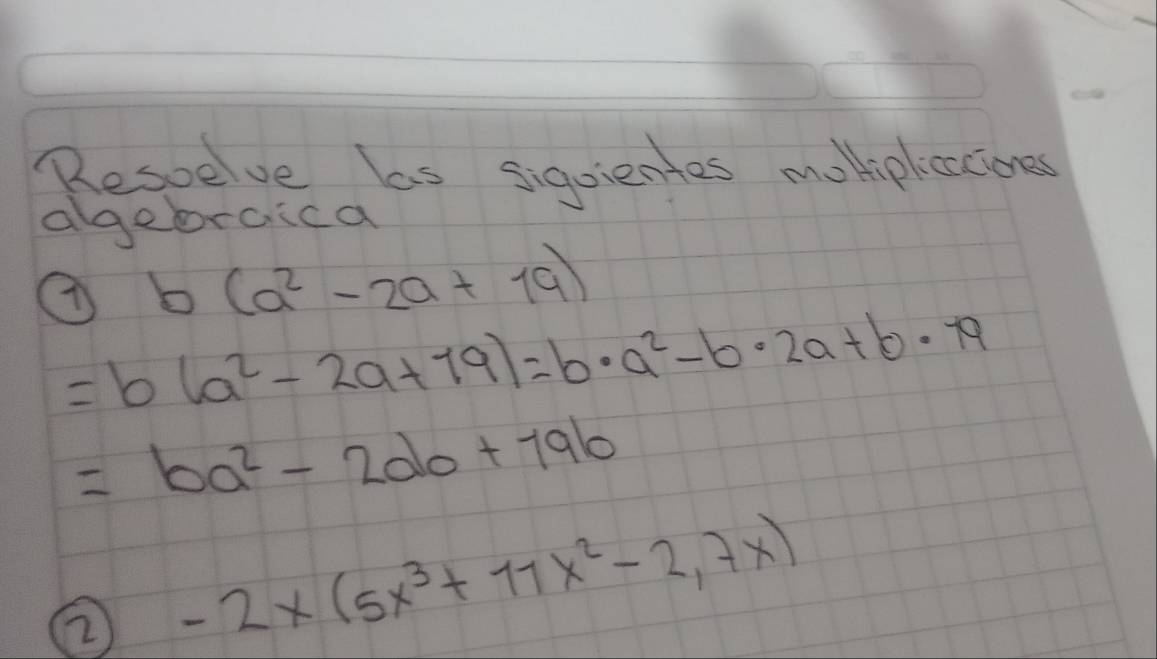 Resuelve las siguientes multiplicaciones
algebraica
① b (a² - 2a + 19)
= b (a² - 2a + 19) = b • a² - b • 2a + b • 19
= ba² - 2ab + 19b
② - 2x (5x³ + 11x² - 2,7x)